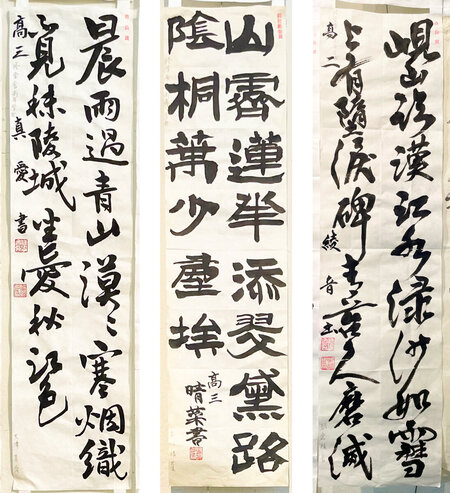 峴山臨漢江水緑沙如雪
上有墮涙碑青苔久磨滅
高二 綾音書
山霽蓮峯添翠黛路
陰桐葉少塵埃
高三 晴菜書
晨雨過青山漠々寒烟織
不見秣陵城坐愛秋江色
高三 真愛書